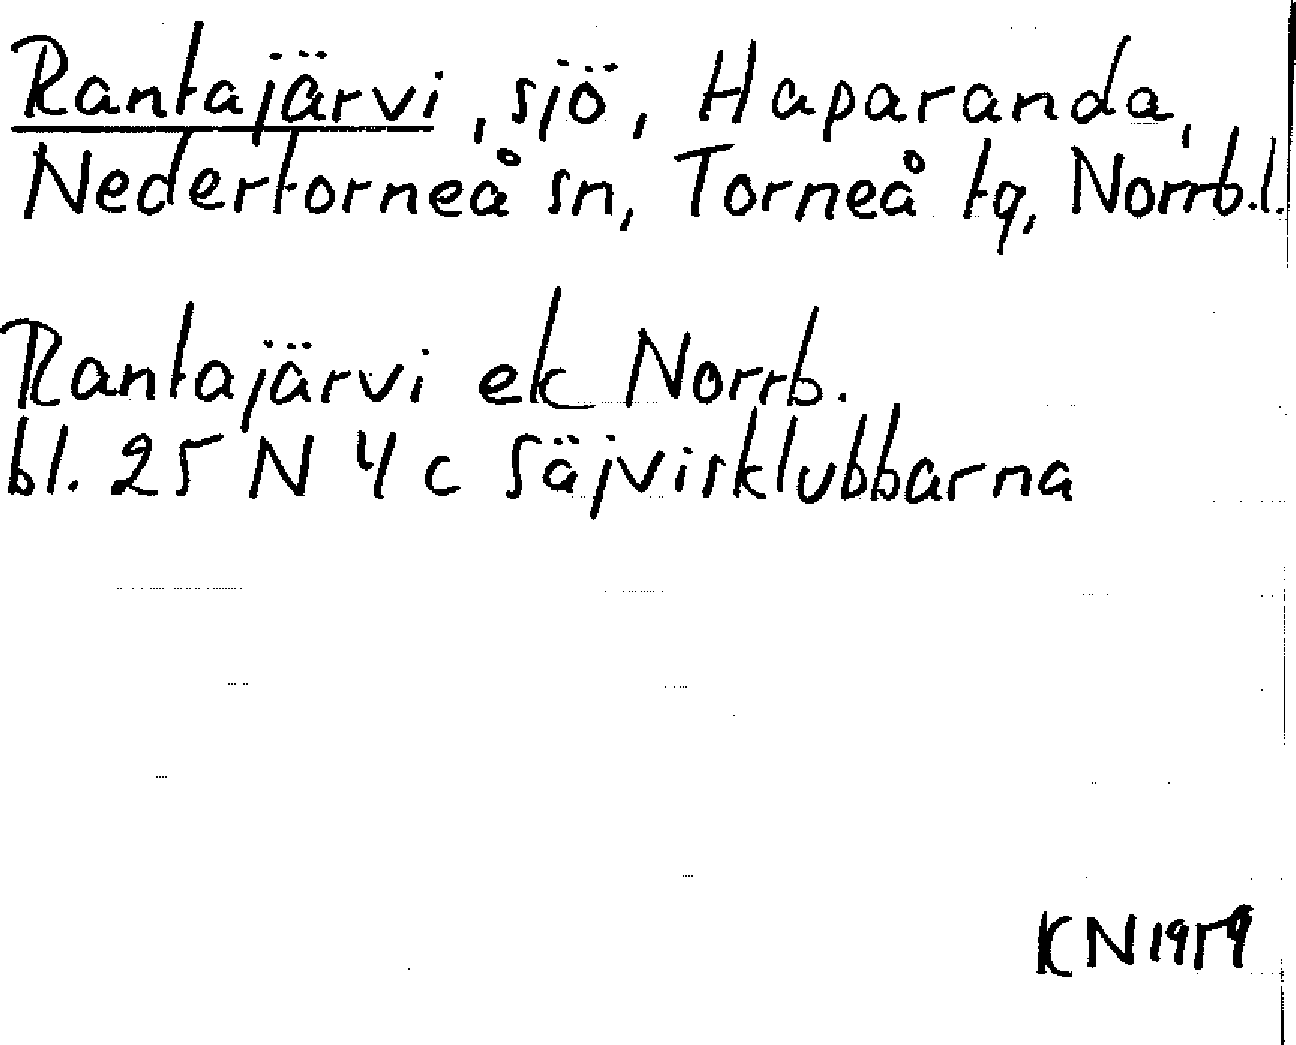 Rantajärvi, sjö, Haparanda,
Nedertorneå sn, Torneå tg, Norrb.l.
Rantajärvi ek Norrb.
bl. 25 N 4 c Säjvisklubbarna
KN 1959